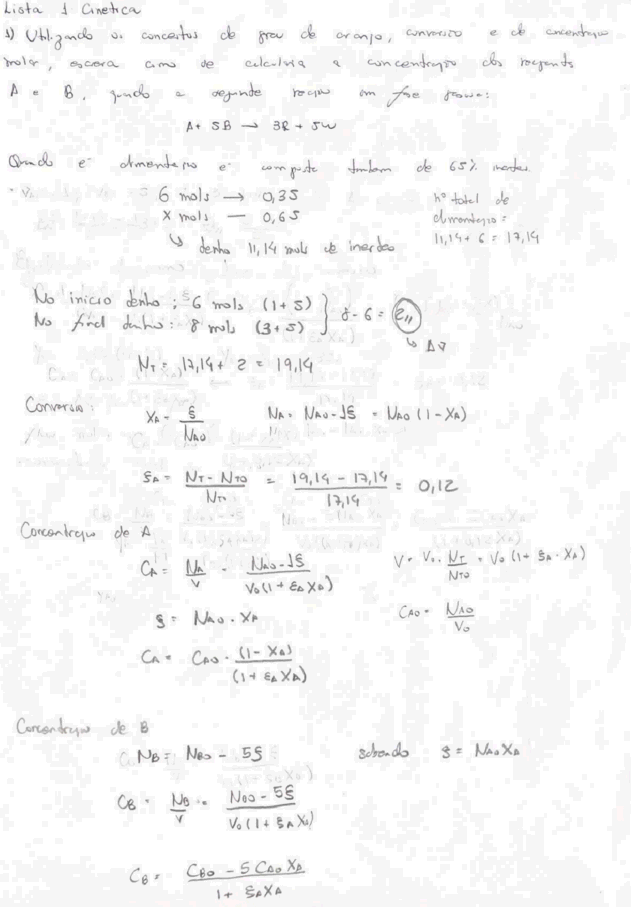 Lista 1 Cinetica
1) Utilizando os conceitos de grau de avanço, conversão e de concentração
molar, escreva como se calcularia a concentração dos reagents
A e B, quando a seguinte reação em fase gasosa:
A + 5B → 3R + 5W
Quando e alimentação e composta também de 65% inertes
6 mols → 0,35
X mols — 0,65
↳ tenho 11,14 mols de inertes
nº total de
alimentação =
11,14 + 6 = 17,14
No início tenho: 6 mols (1+5)
No final tenho: 8 mols (3+5)
8 - 6 = 2,,
↳ Δν
NT = 17,14 + 2 = 19,14
Conversão:
XA = ξ / NA0
NA = NA0 - 1ξ = NA0 (1 - XA)
εA = NT - NT0 / NT0 = 19,14 - 17,14 / 17,14 = 0,12
Concentração de A
CA = NA / V = NA0 - 1ξ / V0 (1 + εA XA)
V = V0 . NT / NT0 = V0 (1 + εA . XA)
ξ = NA0 . XA
CA0 = NA0 / V0
CA = CA0 . (1 - XA) / (1 + εA XA)
Concentração de B
NB = NB0 - 5ξ
sabendo ξ = NA0 XA
CB = NB / V = NB0 - 5ξ / V0 (1 + εA XA)
CB = CB0 - 5 CA0 XA / 1 + εA XA